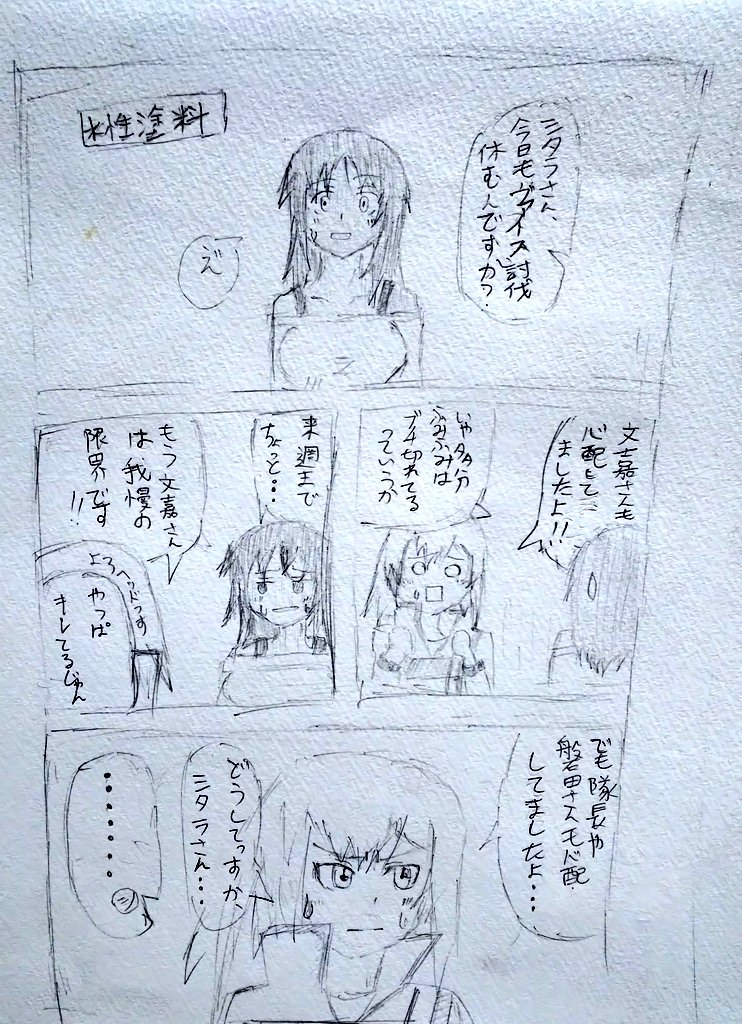 水性塗料
シタラさん、
今日もヴァイス討伐
休むんですか?
え
文嘉さんも
心配して
ましたよ!!
いや多分
ふみふみは
ブチ切れてる
っていうか
来週まで
ちょっと…
もう文嘉さん
は我慢の
限界です
!!
よろヘッドっす
やっぱ
キレてるじゃん
でも隊長や
磐田さんも心配
してましたよ…
どうしてっすか、
シタラさん…
……